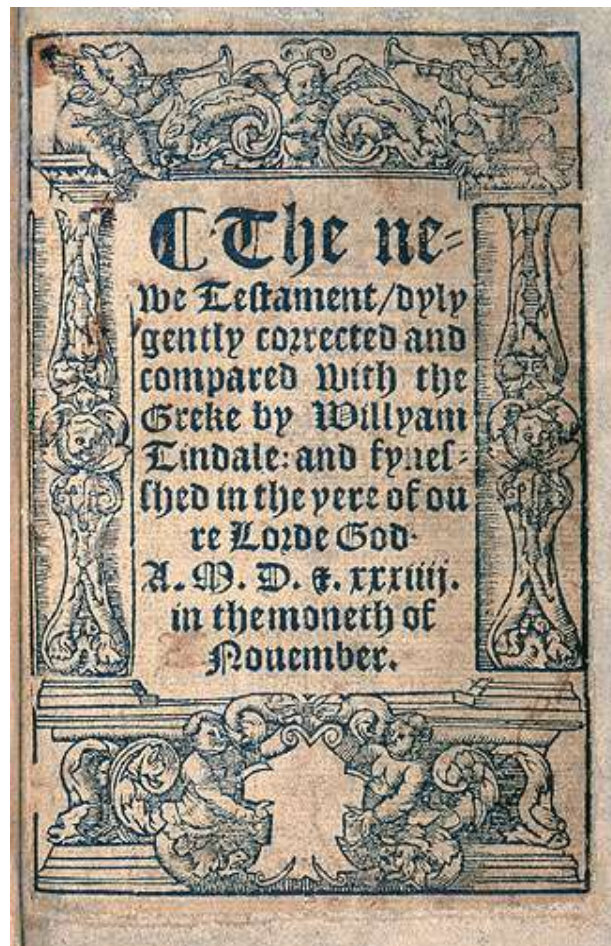 ⁋ The ne⸗
we Testament/dyly
gently corrected and
compared with the
Greke by Willyam
Tindale: and fynes⸗
shed in the yere of ou
re Lorde God.
A. M. D. &. xxxiiij.
in themoneth of
Nouember.